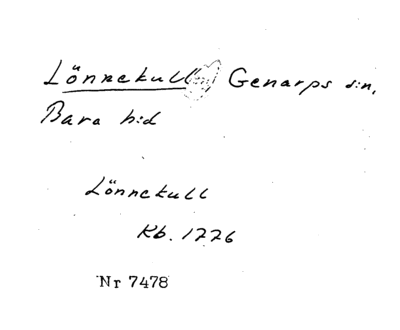 Lönnekull Genarps s:n,
Bara h:d
Lönnekull
Kb. 1226
Nr 7478